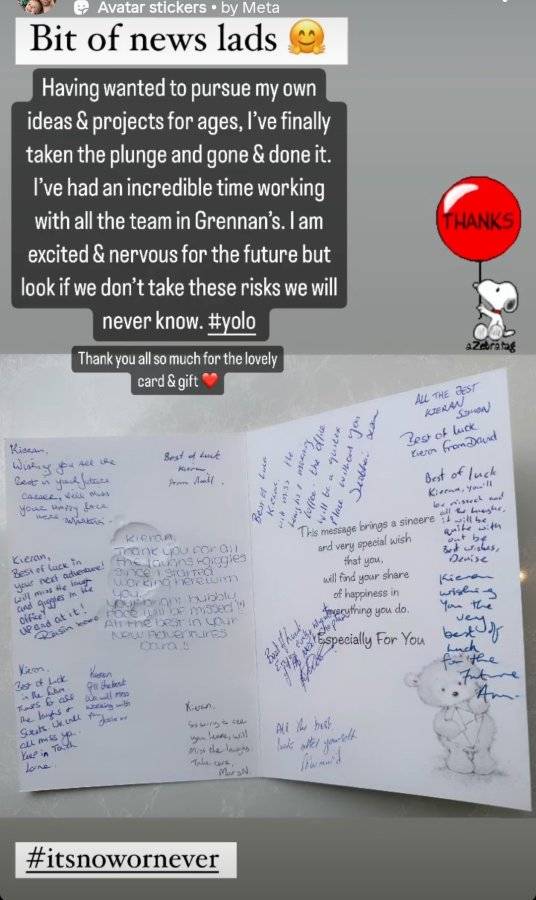 Avatar stickers • by Meta
Bit of news lads 🤗
Having wanted to pursue my own
ideas & projects for ages, I've finally
taken the plunge and gone & done it.
I've had an incredible time working
with all the team in Grennan's. I am
excited & nervous for the future but
look if we don't take these risks we will
never know. #yolo
THANKS
aZebratag
Thank you all so much for the lovely
card & gift ❤️
Kieran,
Wishing you all the
best in your future
career, will miss
your happy face
here
Best of luck
Kieran
Kieran,
Best of luck in
your next adventure!
Will miss the laughs
and giggles in the
office!
Kieran,
Thank you for all
the laughs + giggles
since I started
working here with
you.
Your bright bubbly
will be missed!
All the best in your
New Adventures
Ciara
Kieran
Best of luck
in the future
Thanks for all
the laughs &
We will
all miss you.
Keep in Touch
Lorna
Kieran
All the best
We will miss
working with
you
Kieran,
So sorry to see
you leave, will
miss the laughs.
Take care,
Best of luck
Kieran
ALL THE BEST
KIERAN
SIMON
Best of luck
Kieran from David
Best of luck
Kieran, you'll
be missed and
all the laughs,
it will be
quite with
out be
Best wishes,
Denise
This message brings a sincere
and very special wish
that you,
will find your share
of happiness in
everything you do.
Especially For You
Kieran
wishing
you the
very
best of
luck
for the
future
Ann
Best of luck
All the best
look after yourself
#itsnowornever